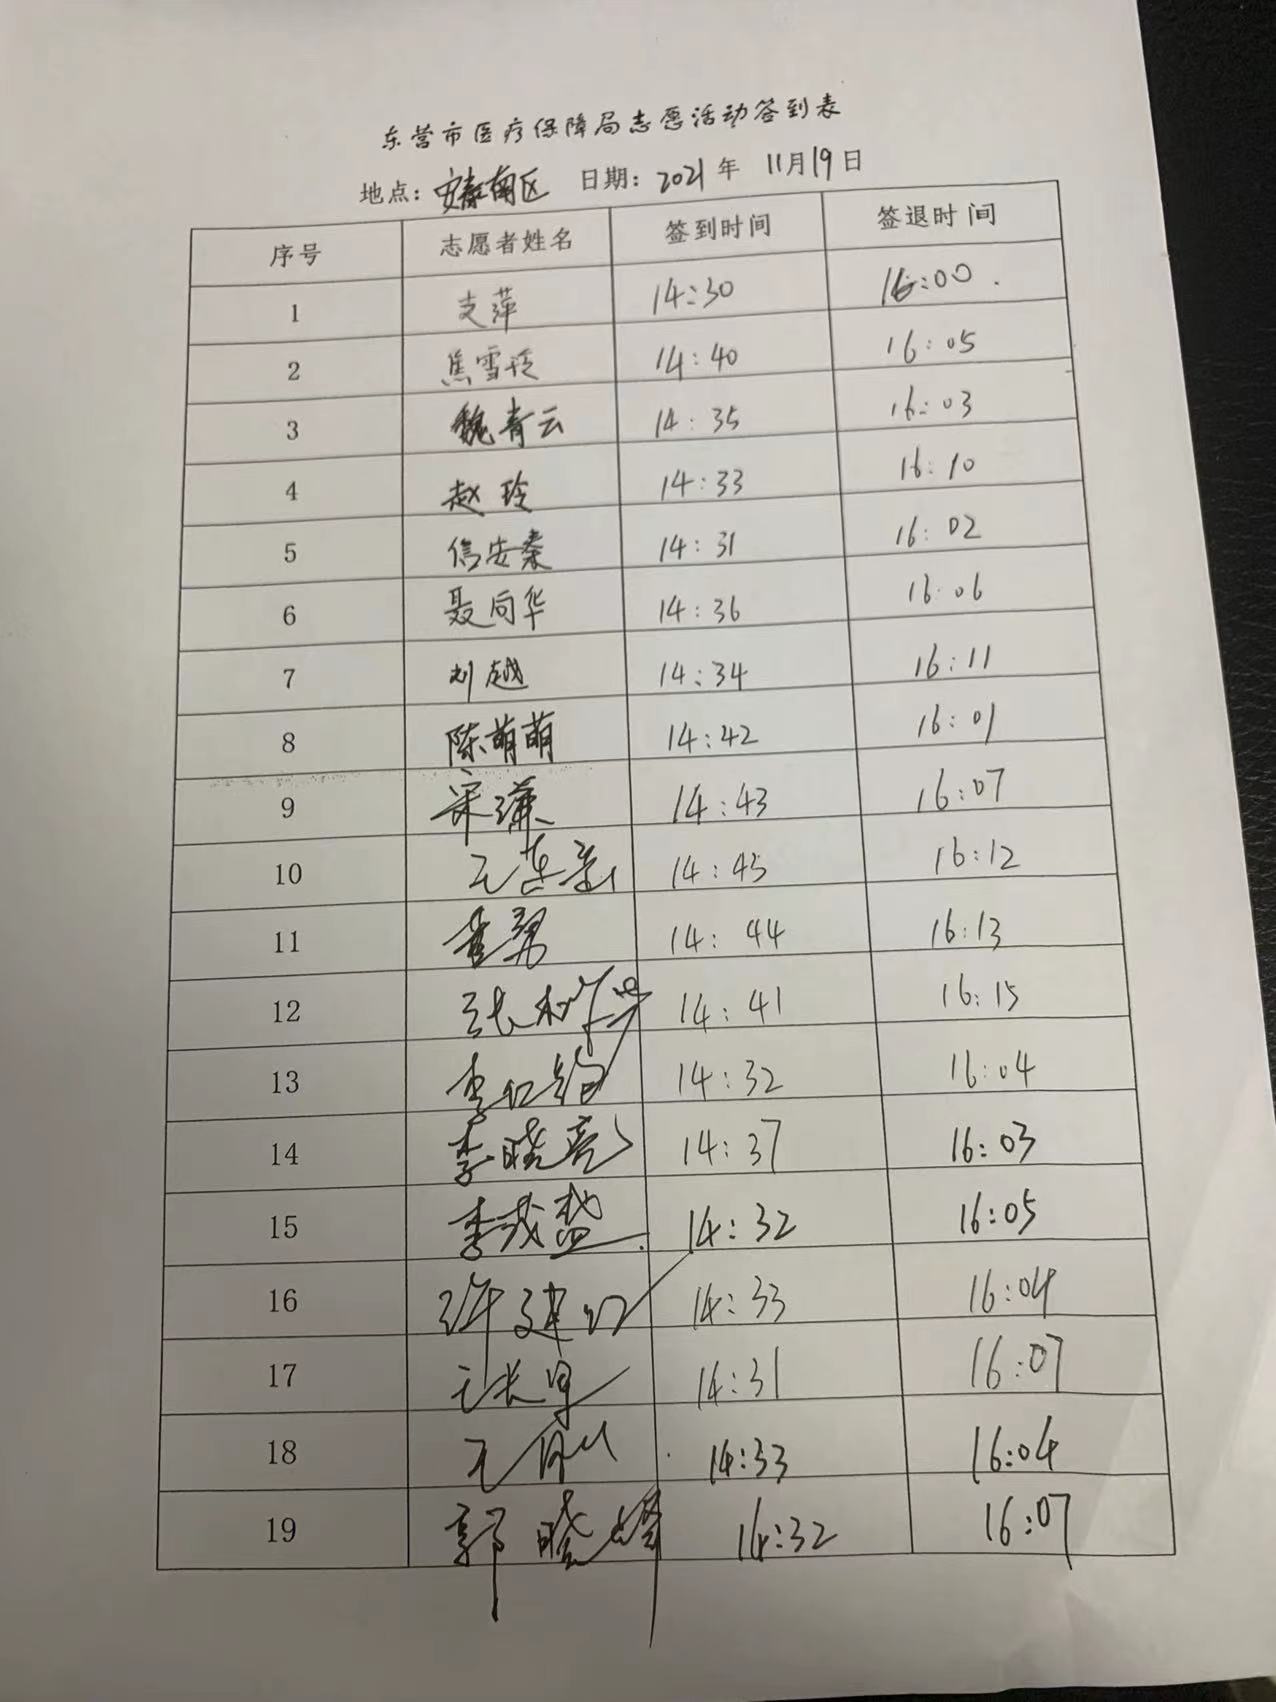 东营市医疗保障局志愿活动签到表
地点：安泰南区 日期：2021年 11月19日
序号 志愿者姓名 签到时间 签退时间
1 支萍 14:30 16:00.
2 焦雪 14:40 16:05
3 魏青云 14:35 16:03
4 赵玲 14:33 16:10
5 信安秦 14:31 16:02
6 聂向华 14:36 16:06
7 刘越 14:34 16:11
8 陈萌萌 14:42 16:01
9 14:43 16:07
10 14:45 16:12
11 14:44 16:13
12 张 14:41 16:15
13 李红 14:32 16:04
14 李晓亮 14:37 16:03
15 李茂盛 14:32 16:05
16 许建 14:33 16:04
17 14:31 16:07
18 王 14:33 16:04
19 郭晓峰 14:32 16:07